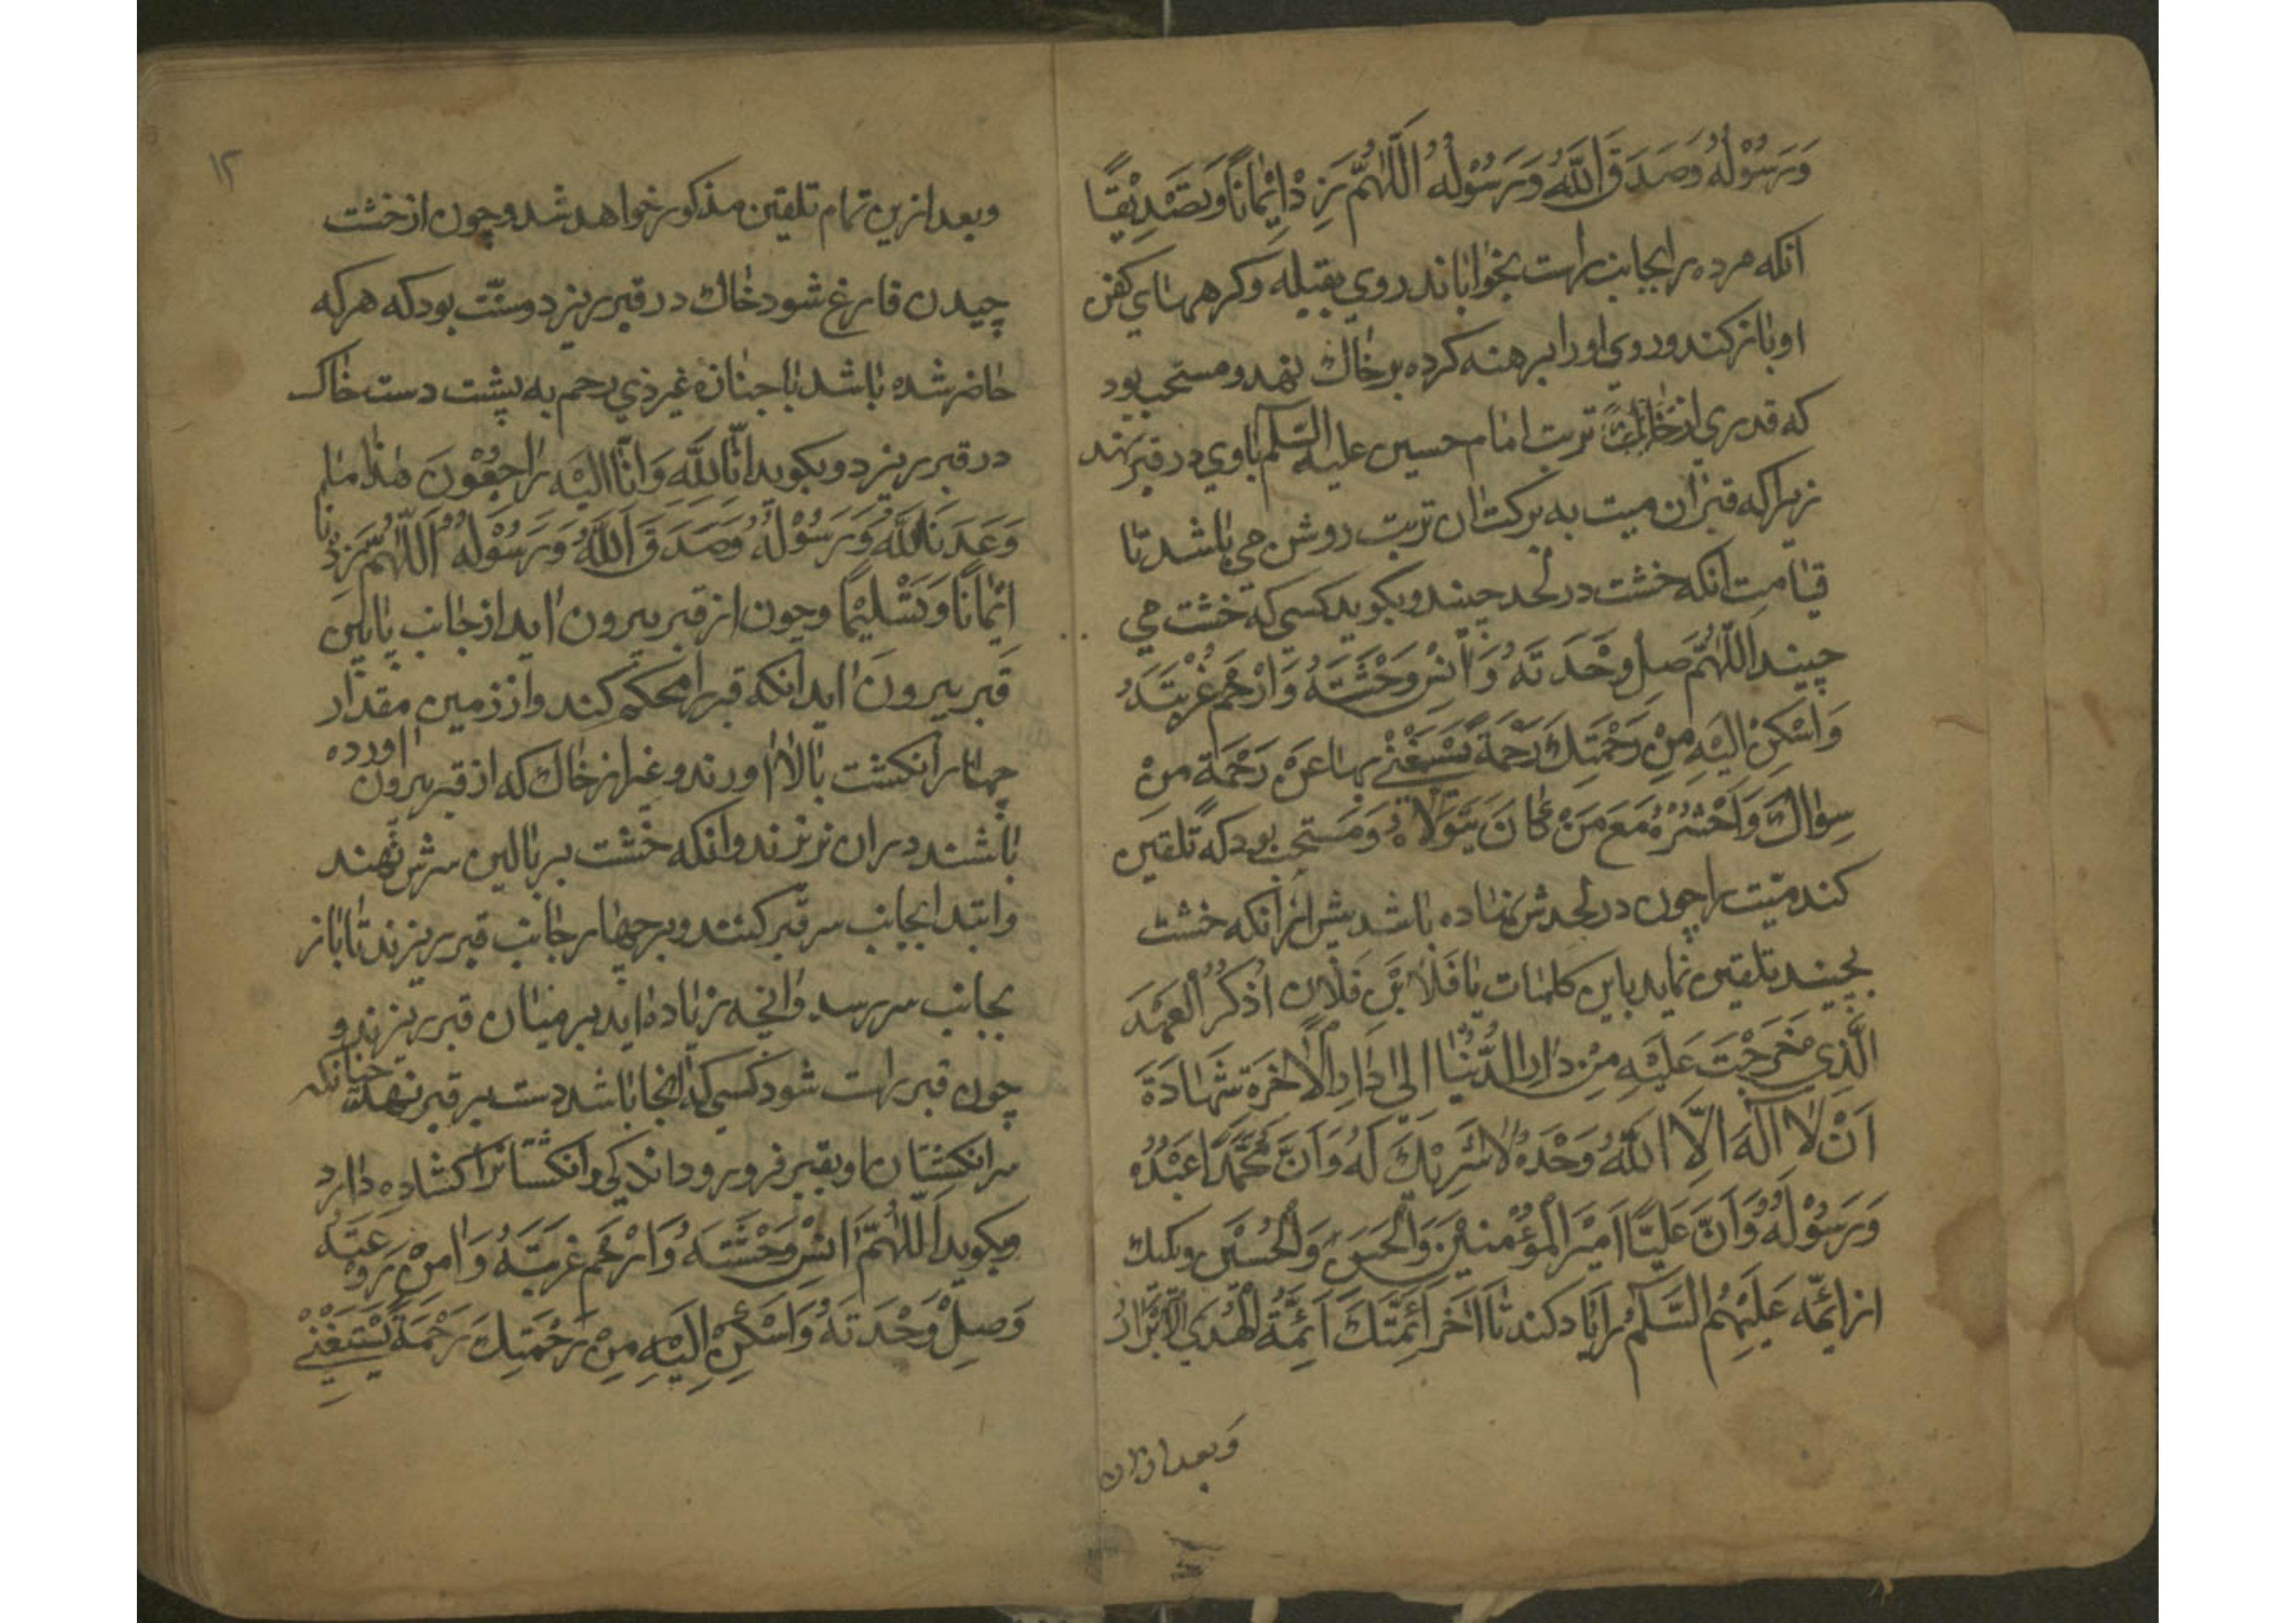 وَرَسُوْلُهُ وَصَدَقَ اللّٰهُ وَرَسُوْلُهُ اَللّٰهُمَّ زِدْ اِيْمَانًا وَتَصْدِيْقًا
انکه مرده را بجانب راست بخواباند روي بقبله وکرههاي کفن
او باز کند و روي او را برهنه کرده بر خاک نهد و مستحب بود
که قدري از خاک تربت امام حسين عليه السّلم باوي در قبر نهند
زيرا که قبر ان ميت به برکت ان تربت روشن مي باشد تا
قيامت انکه خشت در لحد چيند و بکويد کسي که خشت مي
چيند اَللّٰهُمَّ صِلْ وَحْدَتَهُ وَاٰنِسْ وَحْشَتَهُ وَارْحَمْ غُرْبَتَهُ
وَاَسْكِنْ اِلَيْهِ مِنْ رَحْمَتِكَ رَحْمَةً يَسْتَغْنِيْ بِهَا عَنْ رَحْمَةِ مَنْ
سِوَاكَ وَاحْشُرْهُ مَعَ مَنْ كَانَ يَتَوَلَّاهُ و مستحب بود که تلقين
کند ميّت را چون در لحدش نهاده باشد پيش از انکه خشت
بچيند تلقين نمايد باين کلمات يا فلان بْن فلان اُذْكُرُ الْعَهْدَ
الَّذِي خَرَجْتَ عَلَيْهِ مِنْ دَارِ الدُّنْيَا اِلىٰ دَارِ الْاٰخِرَةِ شَهَادَةَ
اَنْ لَا اِلٰهَ اِلَّا اللّٰهُ وَحْدَهُ لَا شَرِيْكَ لَهُ وَاَنَّ مُحَمَّدًا عَبْدُهُ
وَرَسُوْلُهُ وَاَنَّ عَلِيًّا اَمِيْرَ الْمُؤْمِنِيْنَ وَالْحَسَن وَالْحُسَيْن ويکيک
از ائمّه عَلَيْهِمُ السَّلَمُ را ياد کند تا اٰخر اَئِمَّتَكَ اَئِمَّةُ الْهُدَي الْاَبْرَارُ
وبعد ازان
١٢
وبعد ازين تمام تلقين مذکور خواهد شد و چون از خشت
چيدن فارغ شود خاک در قبر ريزد و سنّت بود که هر که
حاضر شده باشد با جنازۀ غير ذي رحم به پشت دست خاک
در قبر ريزد و بکويد اِنَّا لِلّٰهِ وَاِنَّا اِلَيْهِ رَاجِعُوْنَ هٰذَا مَا
وَعَدَنَا اللّٰهُ وَرَسُوْلُهُ وَصَدَقَ اللّٰهُ وَرَسُوْلُهُ اَللّٰهُمَّ زِدْنَا
اِيْمَانًا وَتَسْلِيْمًا و چون از قبر بيرون ايد از جانب پايين
قبر بيرون ايد انکه قبر را محکم کند و از زمين مقدار
چهار انکشت بالا اورند و غير از خاک که از قبر بيرون اورده
باشند دران نريزند وانکه خشت بر بالين سرش نهند
وابتدا بجانب سر قبر کنند و بر چهار جانب قبر ريزند تا باز
بجانب سر رسد وانچه زياده ايد بر ميان قبر ريزند و
چون قبر راست شود کسي که انجا باشد دست بر قبر نهد چنانکه
سر انکشتان او بقبر فرو رود اندکي وانکشتانرا کشاده دارد
وبکويد اَللّٰهُمَّ اٰنِسْ وَحْشَتَهُ وَارْحَمْ غُرْبَتَهُ وَاٰمِنْ رَوْعَتَهُ
وَصِلْ وَحْدَتَهُ وَاَسْكِنْ اِلَيْهِ مِنْ رَحْمَتِكَ رَحْمَةً يَسْتَغْنِيْ